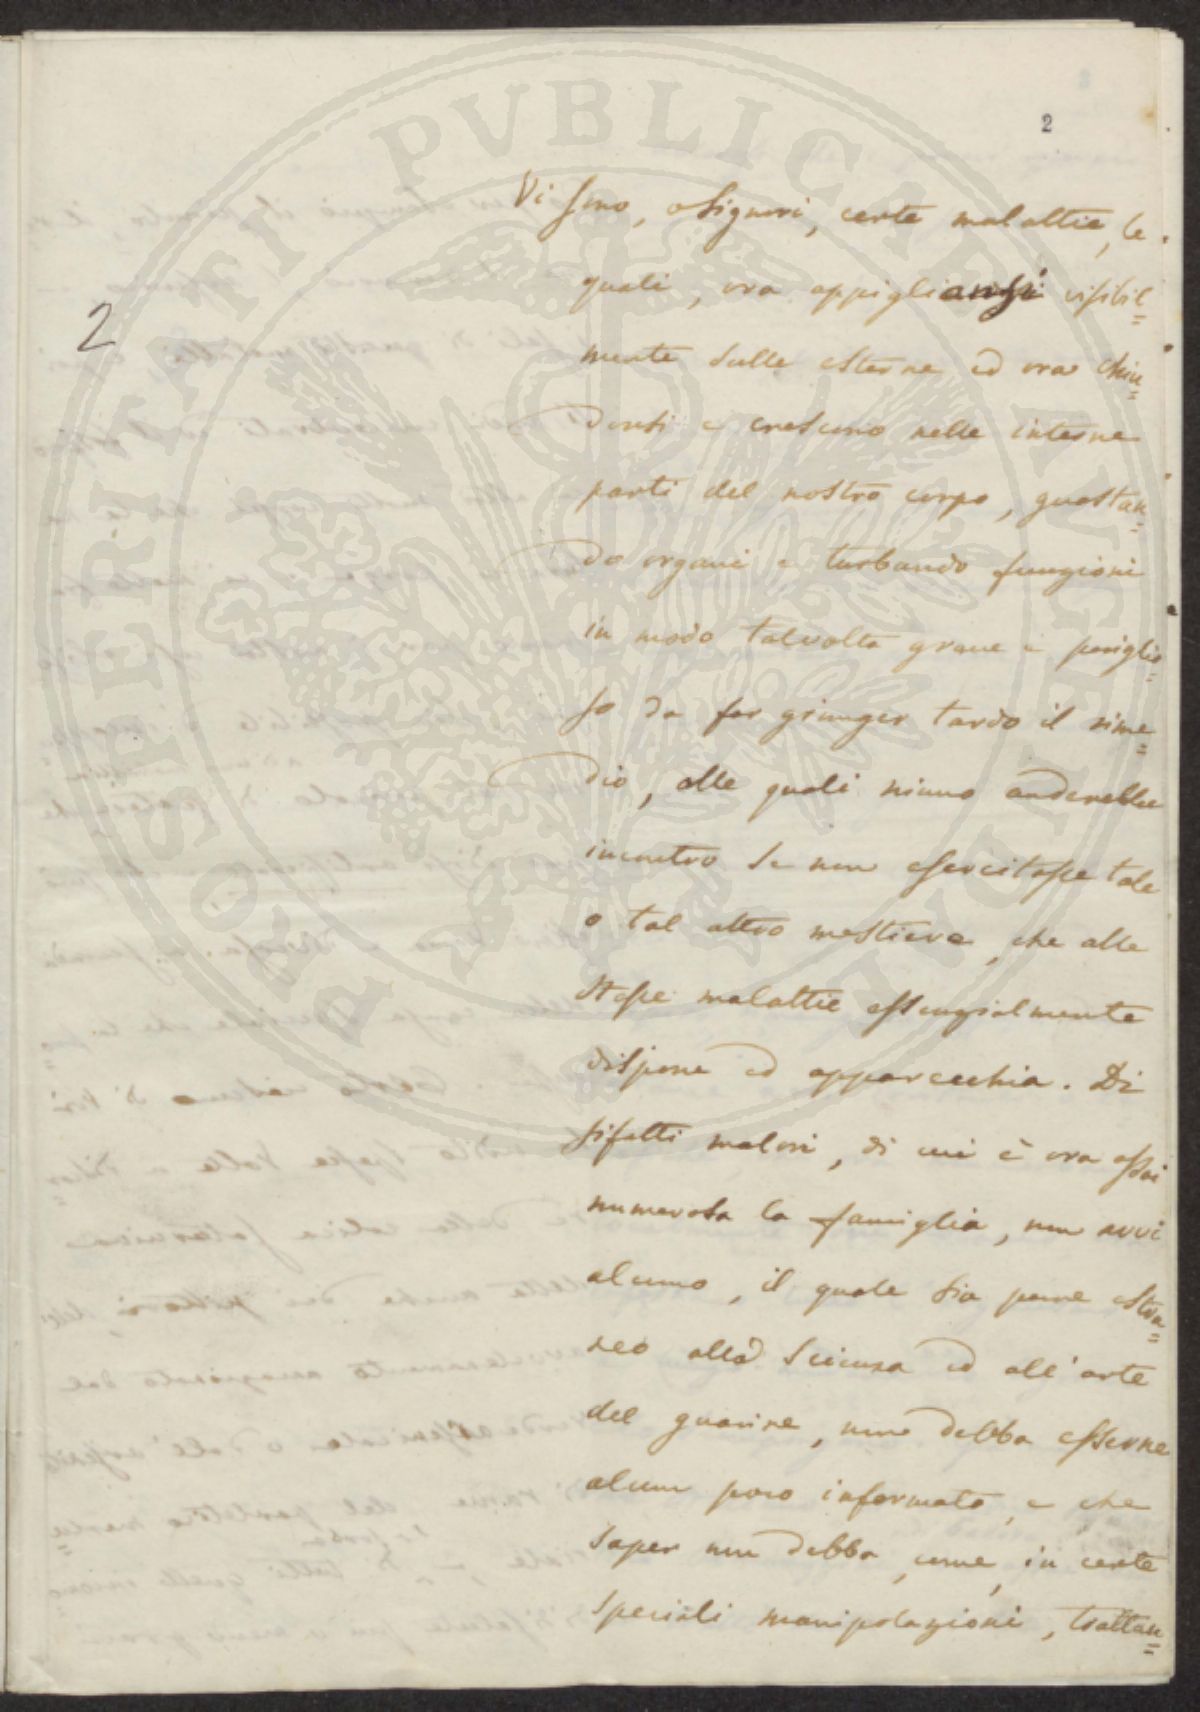 2
2
Vi sono, o Signori, certe malattie, le
quali, ora appigliansi visibil=
mente sulle esterne ed ora chiu=
donsi e crescono nelle interne
parti del nostro corpo, guastan=
do organi e turbando funzioni
in modo talvolta grave e periglio=
so da far giunger tardo il rime=
dio, alle quali niuno anderebbe
incontro se non esercitasse tale
o tal altro mestiere, che alle
stesse malattie essenzialmente
dispone ed apparecchia. Di
sifatti malori, di cui è ora assai
numerosa la famiglia, non avvi
alcuno, il quale sia pure estra=
neo alla scienza ed all'arte
del guarire, non debba esserne
alcun poco informato, e che
saper non debba, come, in certe
speciali manipolazioni, trattan=
PROSPERITATI PVBLICAE AVGENDAE